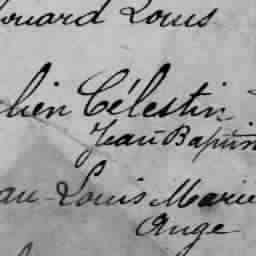 douard Louis
lien Célestin
Jean Baptis
an-Louis Marie
Ange